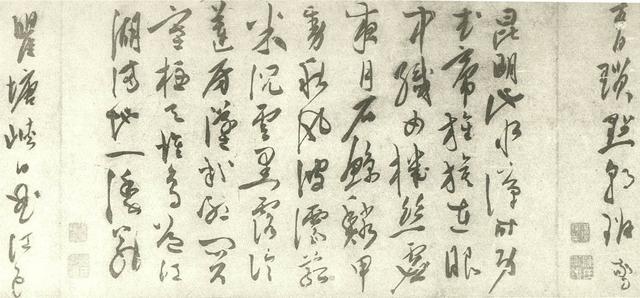 青瑣點朝班
昆明池水漢時功
武帝旌旗在眼
中織女機絲虛
夜月石鯨鱗甲
動秋風波漂菰
米沉雲黑露冷
蓮房墜粉紅關
塞極天惟鳥道江
湖滿地一漁翁
瞿塘峽口曲江